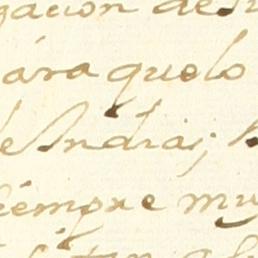 gacion de
para quelo
de Indias;
siempre muy